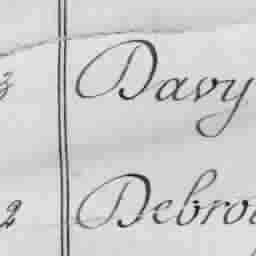 3 Davy
2 Debro